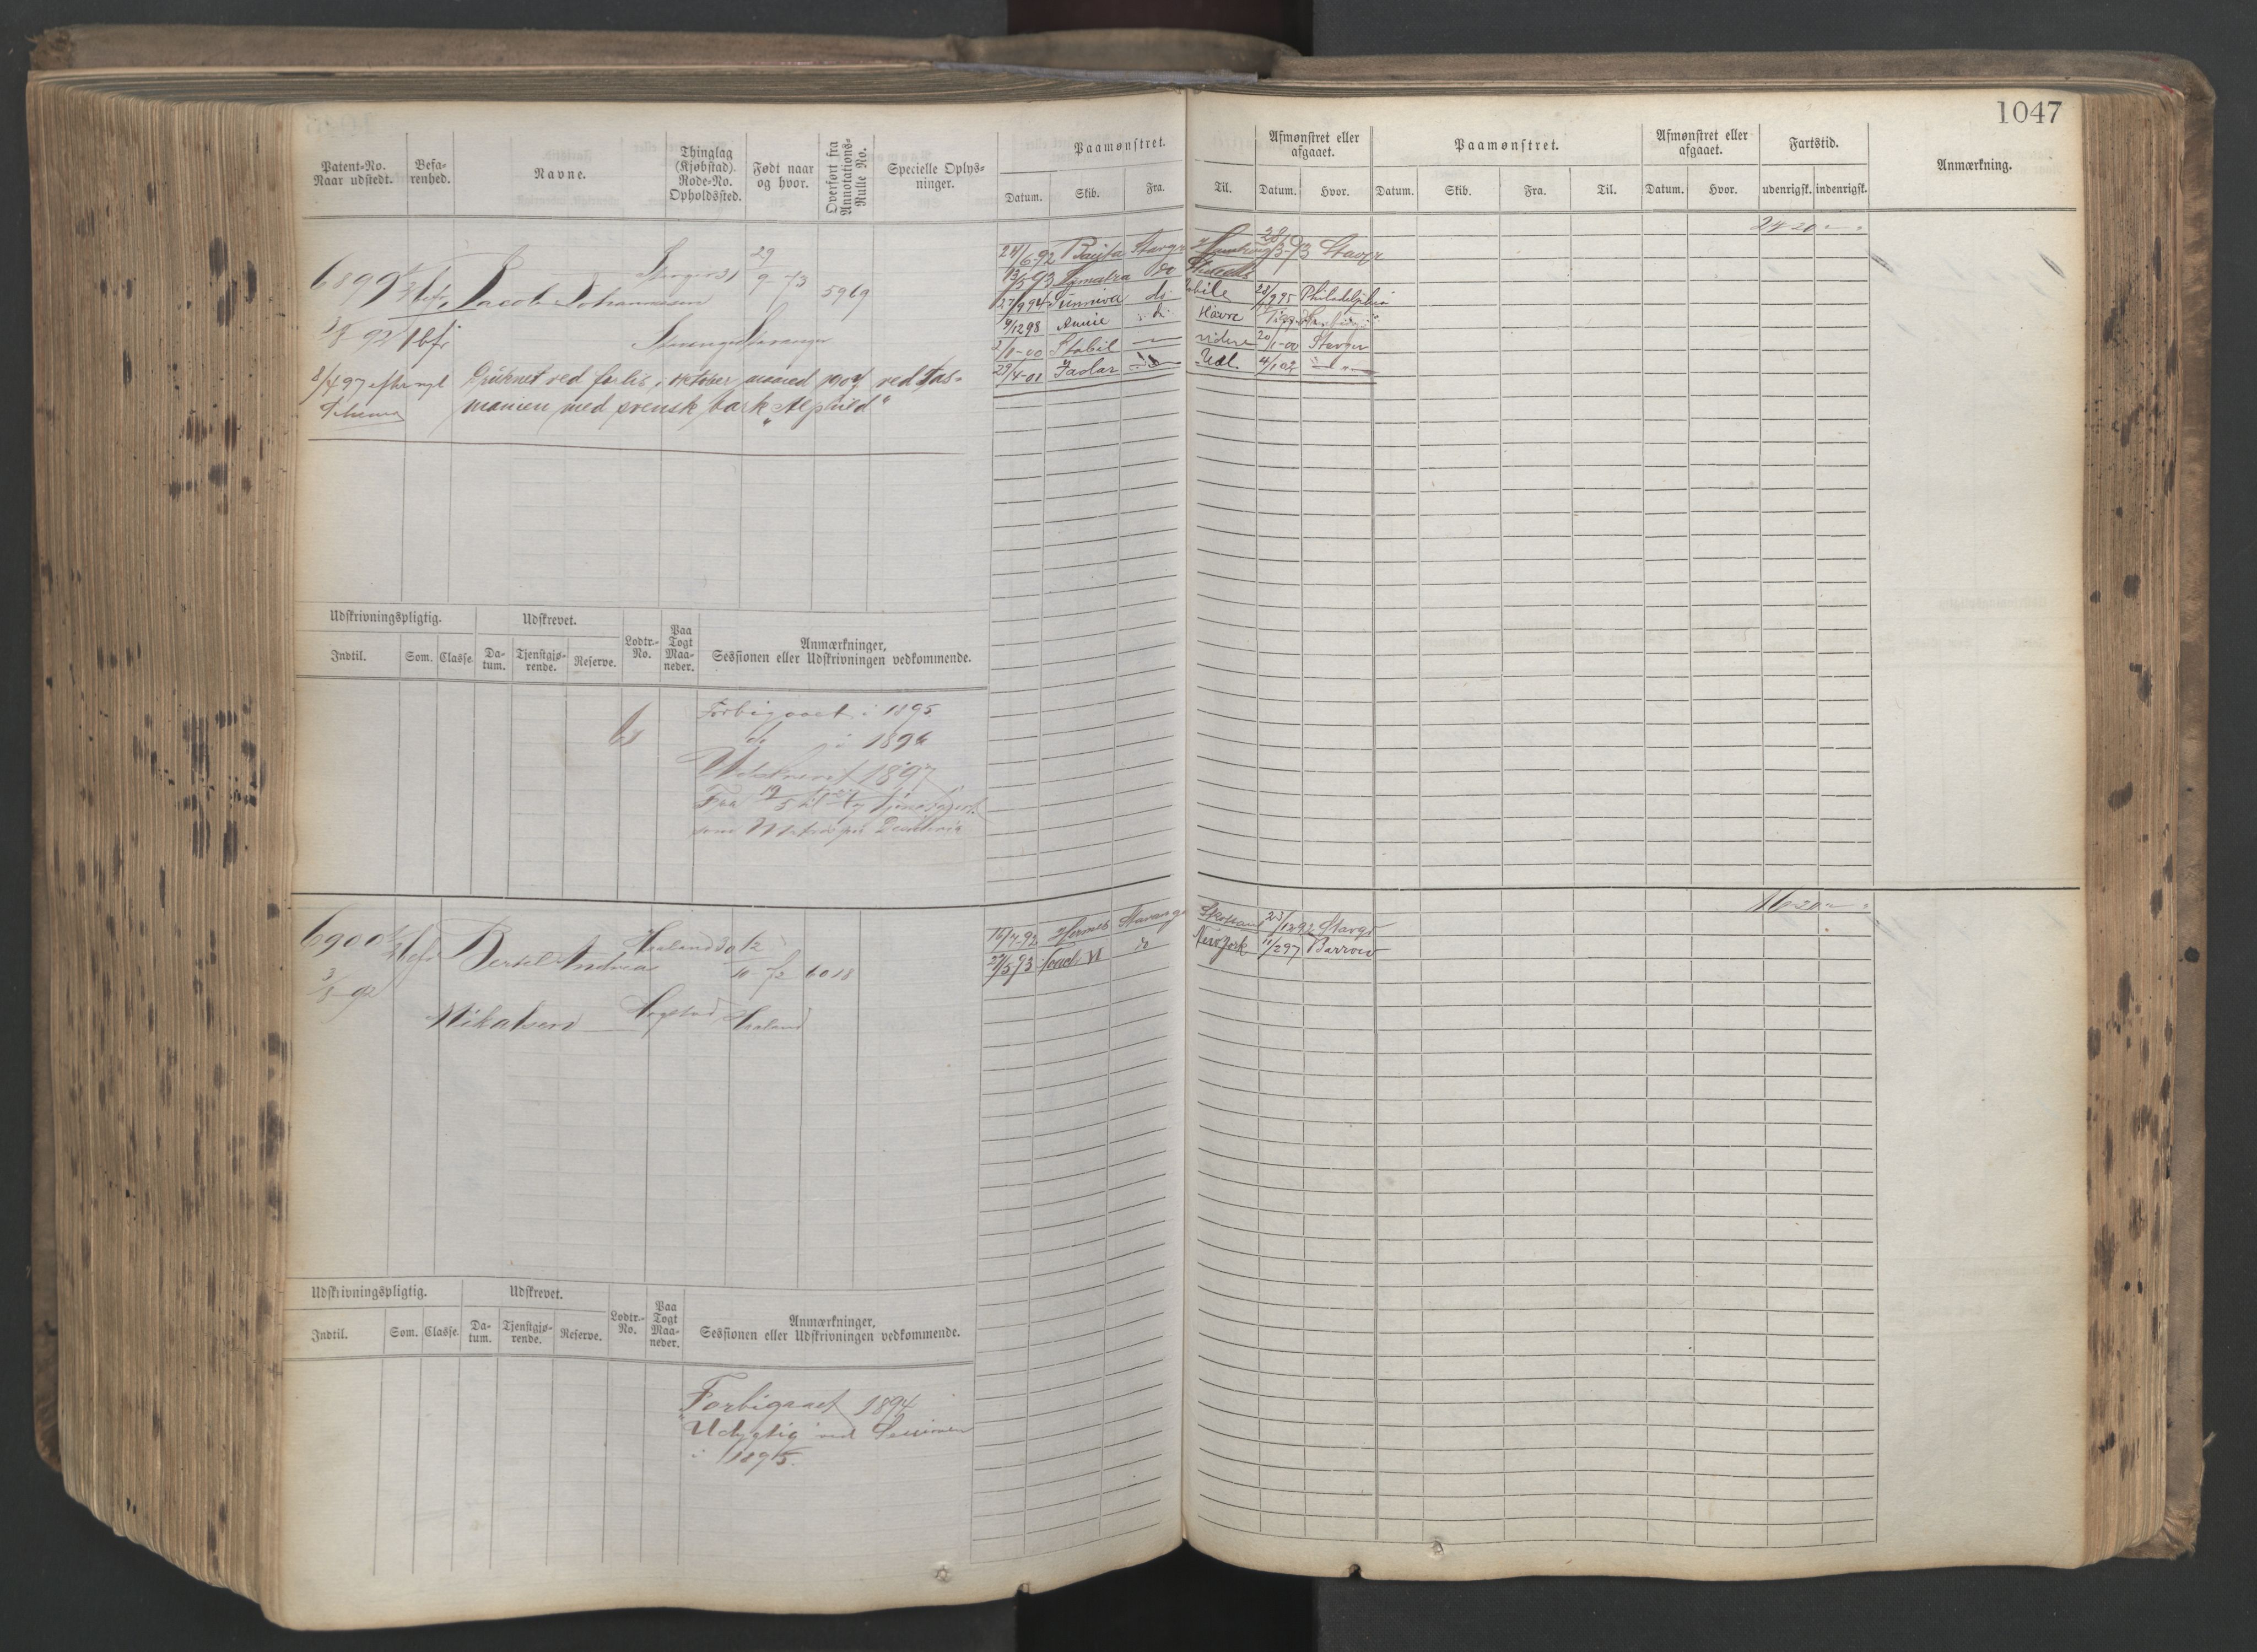 1047
Patent-No.
Naar udstedt.
Befa-
renhed.
Navne.
Thinglag
(Kjøbstad).
Rode-No.
Opholdssted.
Født naar
og hvor.
Overført fra
Annotations-
Rulle No.
Specielle Oplys-
ninger.
Paamønstret.
Datum.
Skib.
Fra.
Til.
Afmønstret eller
afgaaet.
Datum.
Hvor.
Paamønstret.
Datum.
Skib.
Fra.
Til.
Afmønstret eller
afgaaet.
Datum.
Hvor.
Fartstid.
udenrigsk.
indenrigsk.
Anmærkning.
6899
Jacob Johannessen
Stavanger
29
9-73
5969
3/8-92
8/4 97 efter nyt
Schema
Druknet ved forlis i oktober maaned 1907 ved Tas-
manien med svensk bark „Alphild“
24/6 92
Stavgr
Hamburg
Stavgr
13/5 93 Sumatra do
27/9 94 Sunniva
28/7 95 Philadelphia
9/12 98 Annie
Havre
2/1-00 Stabil
videre 20/1-00 Stavgr
29/4-01 Jadar do
Udl. 4/1 02
24-20
Udskrivningspligtig.
Indtil.
Som.
Classe.
Udskrevet.
Da-
tum.
Tjenstgjø-
rende.
Reserve.
Lodtr.-
No.
Paa
Togt
Maa-
neder.
Anmærkninger,
Sessionen eller Udskrivningen vedkommende.
Forbigaaet i 1895
do i 1896
Udskrevet 1897
Fra 19/5 til
som Matros
6900
Bertel Andreas
Mikalsen
Haaland 30
12
10-72
6018
3/8-92
Hogstad
Haaland
16/7-92 Hermes Stavanger
23/12 92 Stavgr
27/5 93 do
New York 11/2 97 Barrow
16-20
Udskrivningspligtig.
Indtil.
Som.
Classe.
Udskrevet.
Da-
tum.
Tjenstgjø-
rende.
Reserve.
Lodtr.-
No.
Paa
Togt
Maa-
neder.
Anmærkninger,
Sessionen eller Udskrivningen vedkommende.
Forbigaaet 1894
Udygtig ved Sessionen
i 1895.